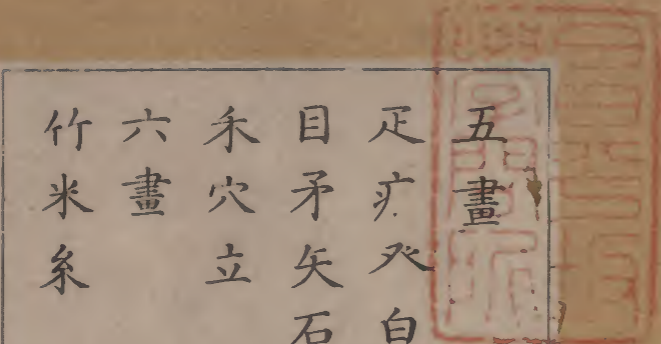 五畫
疋疒癶白
目矛矢石
禾穴立
六畫
竹米糸